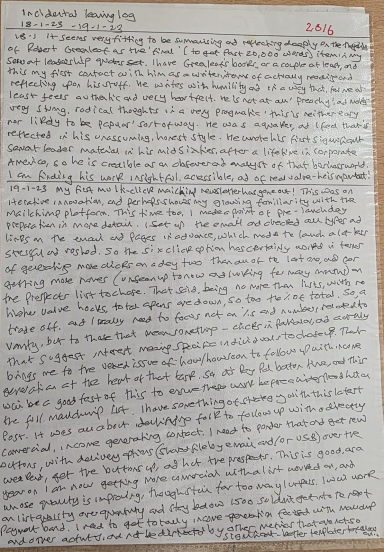 Incidental learning log
18-1-23 - 19-1-23
2016
18-1 It seems very fitting to be summarising and reflecting deeply on the
of Robert Greenleaf as the final (to get past 20,000 words) item in my
servant leadership quotes set. I have Greenleaf's books, or a couple at least, and
this my first contact with him as a writer, in terms of actually reading and
reflecting upon his stuff. He writes with humility and in a way that, for me at
least feels authentic and very heartfelt. He is not at all 'preachy', and
very strong, radical thoughts in a very pragmatic 'this is neither easy
nor likely to be popular' sort of way. He was a Quaker, and I feel that is
reflected in his unassuming, honest style. He wrote his first significant
servant leader material in his mid sixties, after a lifetime in corporate
America, so he is credible as an observer and analyst of that business world.
I am finding his work insightful, accessible, and of real value - he is important!
19-1-23 My first multi-click mailchimp newsletter has gone out! This was an
iterative innovation, and perhaps shows my growing familiarity with the
mailchimp platform. This time too, I made a point of pre-launch day
preparation in more detail. I set up the email and checked all types and
links on the email and pages in advance, which made the launch a lot less
stressful and rushed. So the six click option has certainly worked in terms
of generating more clicks on day two than any of the lot are, and
getting more names (unseen up to now and lurking for many months) on
the prospects list to chase. That said, being no more than lists, with no
higher value hooks, total opens are down, so too the % of total. So a
trade off. And I really need to focus not on %s and numbers, related to
vanity, but to those that mean something - clicks in particular, and actually
that suggest interest, mean specific individuals to chase up. That
brings me to the vexed issue of how/how soon to follow up with income
generation at the heart of that task. So
will be a good test of this to ensure these
the full mailchimp list. I have something of a strategy with this latest
post. It was all about
commercial, income generating contact. I need to ponder that and get new
buttons, with delivery options (shared file by email and/or USB) over the
weekend, get the 'buttons' up, and hit the prospects. This is good, as a
year on I am now getting more commercial with a list worked on, and
whose quality is improving, though still far too many unders. I will work
on list quality over quantity and stay below 1500 so I don't get into the next
payment band. I need to get totally income generation focused with
and other activity, and not be distracted by other metrics that are not so
significant - better templates